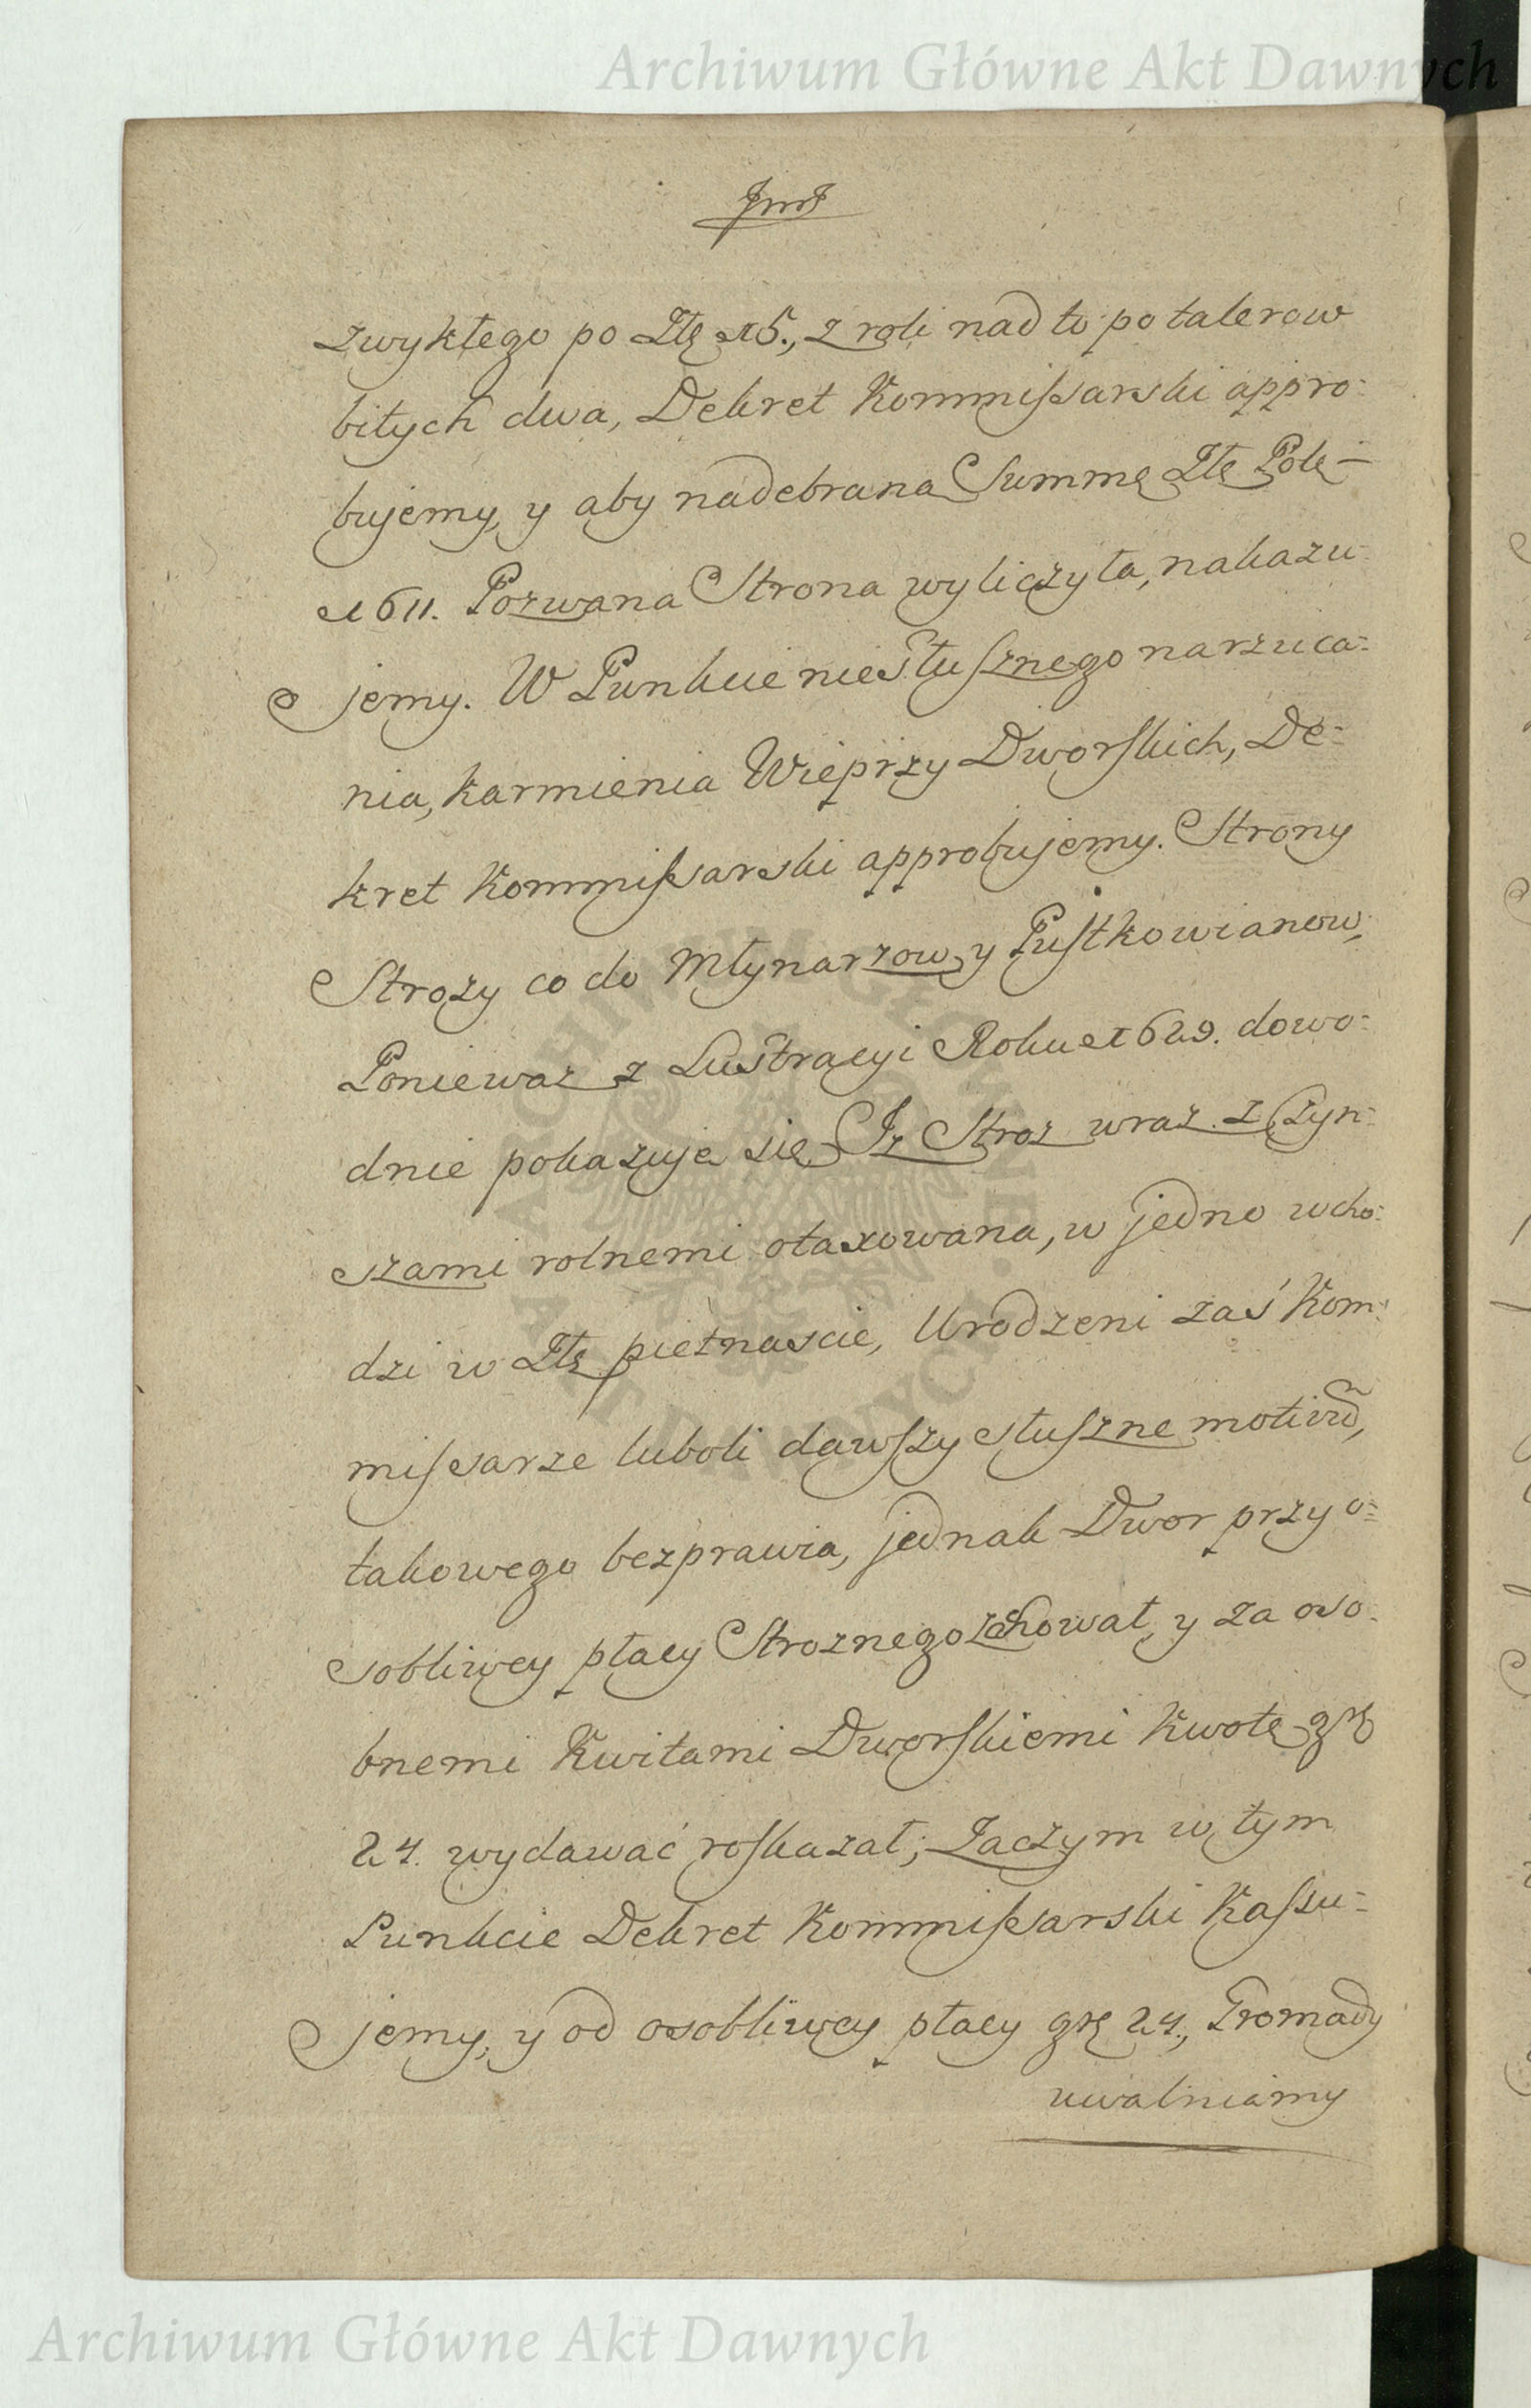 Archiwum Główne Akt Dawnych
JmJ
zwykłego po Złł 15., z roli nad to po talerow
bitych dwa, Dekret Kommissarski appro=
bujemy, y aby nadebrana Summę Złł Pol:
1611. Pozwana Strona wyliczyła, nakazu=
jemy. W Punkcie niesłusznego narzuca=
nia, karmienia Wieprzy Dworskich, De=
kret Kommissarski approbujemy. Strony
Strozy co do Młynarzow, y Pustkowianow,
Poniewaz z Lustracyi Roku 1629. dowo=
dnie pokazuje się Jz Stroz wraz z Czyn=
szami rolnemi otaxowana, w jedno wcho=
dzi w Złł pietnascie, Urodzeni zaś Kom=
missarze luboli dawszy słuszne motiva,
takowego bezprawia, jednak Dwor przy o=
sobliwey płacy Stroznego zachował, y za oso=
bnemi Kwitami Dworskiemi Kwotę grł
24. wydawać roskazał; Zaczym w tym
Punkcie Dekret Kommissarski Kassu=
jemy, y od osobliwey płacy grł 24., Gromady
uwalniamy
Archiwum Główne Akt Dawnych